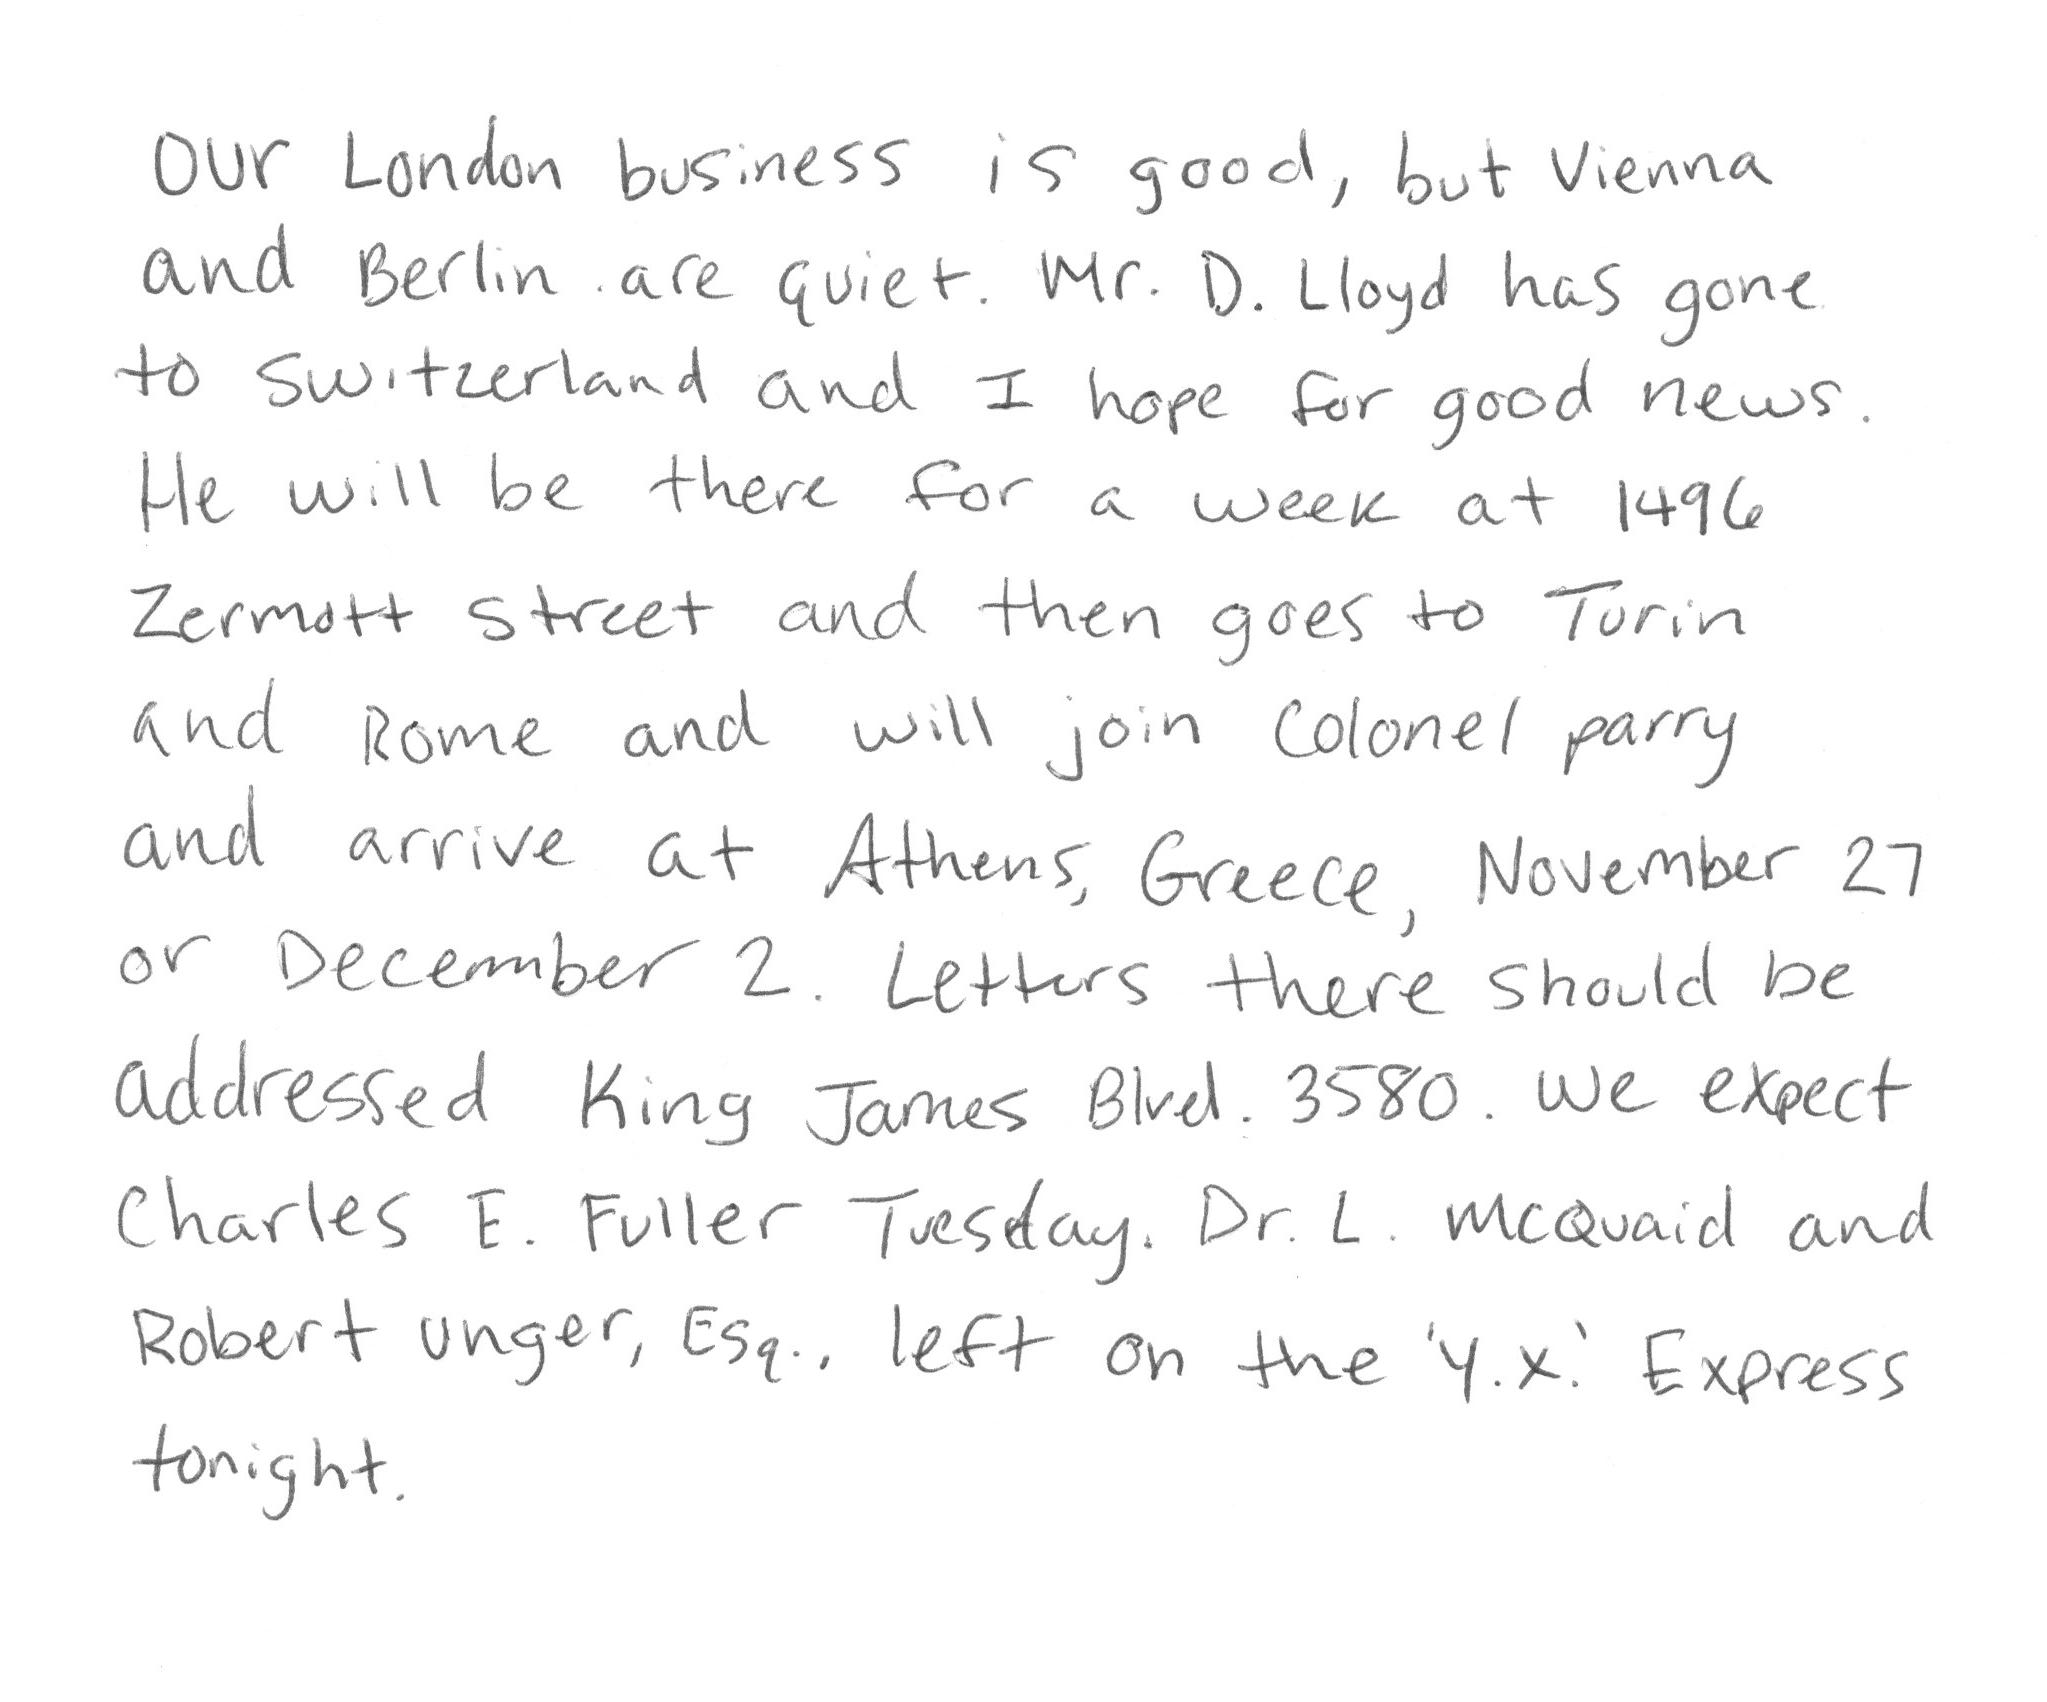 Our London business is good, but Vienna
and Berlin are quiet. Mr. D. Lloyd has gone
to Switzerland and I hope for good news.
He will be there for a week at 1496
Zermott Street and then goes to Turin
and Rome and will join Colonel Parry
and arrive at Athens, Greece, November 27
or December 2. Letters there should be
addressed King James Blvd. 3580. We expect
Charles E. Fuller Tuesday. Dr. L. McQuaid and
Robert Unger, Esq., left on the 'Y.X.' Express
tonight.